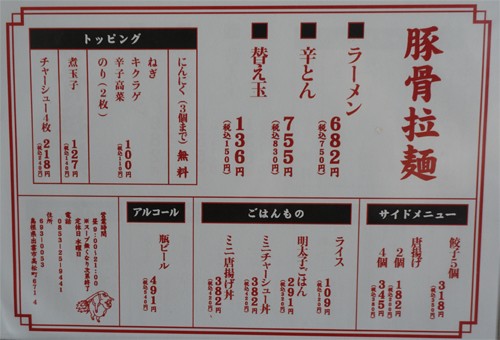 豚骨拉麺
■ラーメン 682円
(税込750円)
■辛とん 755円
(税込830円)
■替え玉 136円
(税込150円)
トッピング
にんにく(3個まで) 無料
ねぎ
キクラゲ
辛子高菜
のり(2枚)
100円
(税込110円)
煮玉子 127円
(税込140円)
チャーシュー4枚 218円
(税込240円)
サイドメニュー
餃子5個 318円
唐揚げ
2個 182円
4個 345円
ごはんもの
ライス 109円
明太子ごはん 291円
ミニチャーシュー丼 382円
ミニ唐揚げ丼 382円
アルコール
瓶ビール 491円
営業時間
昼9:00~21:00
※スープ無くなり次第終了
定休日 水曜日
電話
0853-25-9441
住所
693-0053
島根県出雲市高松町677-4